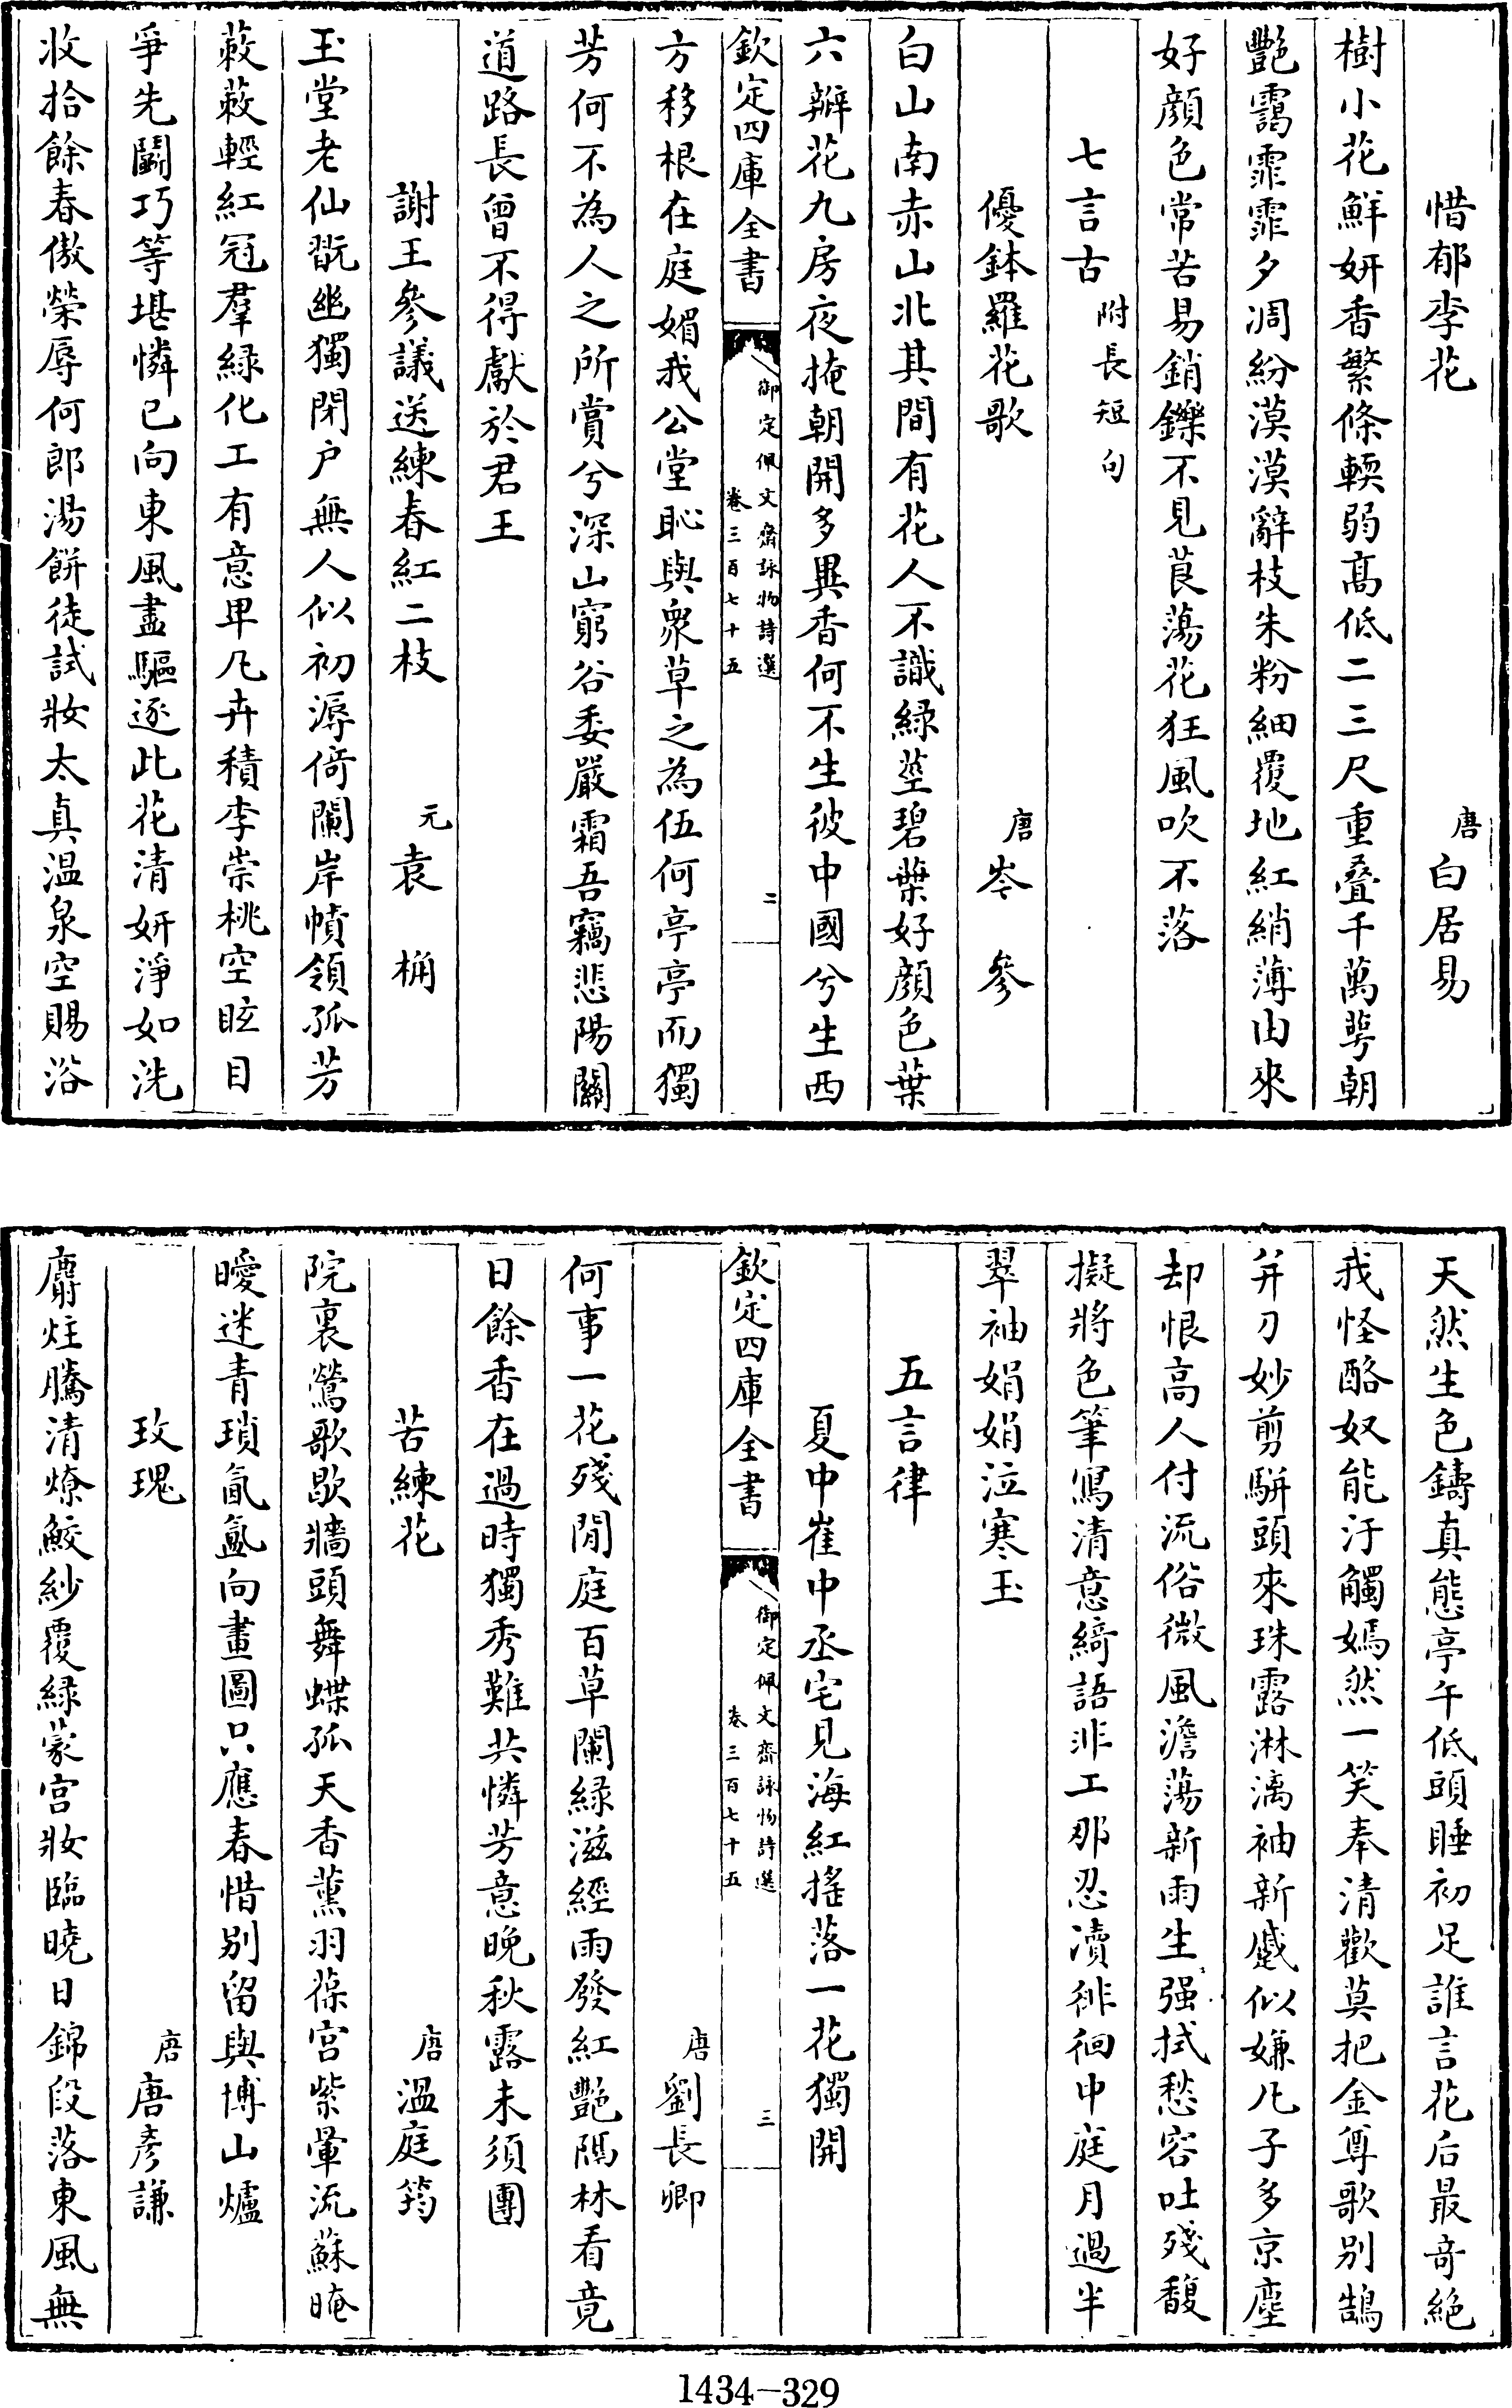 惜郁李花　唐白居易
樹小花鮮妍香繁條輭弱髙低二三尺重疊千萬萼朝
艷靄霏霏夕凋紛漠漠辭枝朱粉細覆地紅綃薄由來
好顔色常苦易銷鑠不見莨蕩花狂風吹不落
七言古附長短句
優鉢羅花歌　唐岑參
白山南赤山北其間有花人不識緑莖碧葉好顔色葉
六瓣花九房夜掩朝開多異香何不生彼中國兮生西
欽定四庫全書　御定佩文齋詠物詩選　卷三百七十五　二
方移根在庭媚我公堂恥與衆草之為伍何亭亭而獨
芳何不為人之所賞兮深山窮谷委嚴霜吾竊悲陽關
道路長曾不得獻於君王
謝王參議送練春紅二枝　元袁桷
玉堂老仙翫幽獨閉户無人似初溽倚闌岸幘領孤芳
蔌蔌輕紅冠羣緑化工有意卑凡卉積李崇桃空眩目
爭先鬭巧等堪憐已向東風盡驅逐此花清妍淨如洗
收拾餘春傲榮辱何郎湯餅徒試妝太真温泉空賜浴
天然生色鑄真態亭午低頭睡初足誰言花后最奇絶
我怪酪奴能汙觸嫣然一笑奉清歡莫把金尊歌别鵠
并刀妙剪駢頭來珠露淋漓袖新蹙似嫌凡子多京塵
却恨高人付流俗微風澹蕩新雨生强拭愁容吐殘馥
擬將色筆寫清意綺語非工那忍瀆徘徊中庭月過半
翠袖娟娟泣寒玉
五言律
夏中崔中丞宅見海紅搖落一花獨開
欽定四庫全書　御定佩文齋詠物詩選　卷三百七十五　三
唐劉長卿
何事一花殘閒庭百草闌緑滋經雨發紅艷隔林看竟
日餘香在過時獨秀難共憐芳意晚秋露未須團
苦練花　唐溫庭筠
院裏鶯歌歇牆頭舞蝶孤天香薰羽葆宫紫暈流蘇晻
曖迷青瑣氤氲向畫圖只應春惜别留與博山爐
玫瑰　唐唐彦謙
麝炷騰清燎鮫紗覆緑蒙宫妝臨曉日錦段落東風無
1434-329